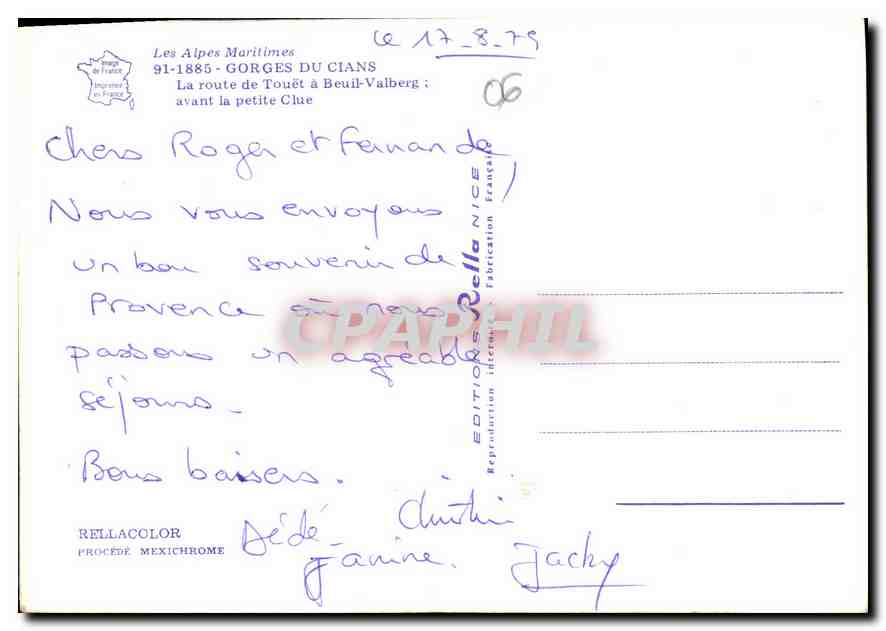 Le 17-8-79
Image
de France
Imprimée
en France
Les Alpes Maritimes
91-1885 - GORGES DU CIANS
La route de Touët à Beuil-Valberg ;
avant la petite Clue
06
Chers Roger et Fernande,
Nous vous envoyons
un bon souvenir de
Provence où nous
passons un agréable
séjours -
Bons baisers.
Dédé - Christine
Janine. Jacky
RELLACOLOR
PROCÉDÉ MEXICHROME
EDITIONS Rella NICE
Reproduction interdite - Fabrication Française
CPAPHIL